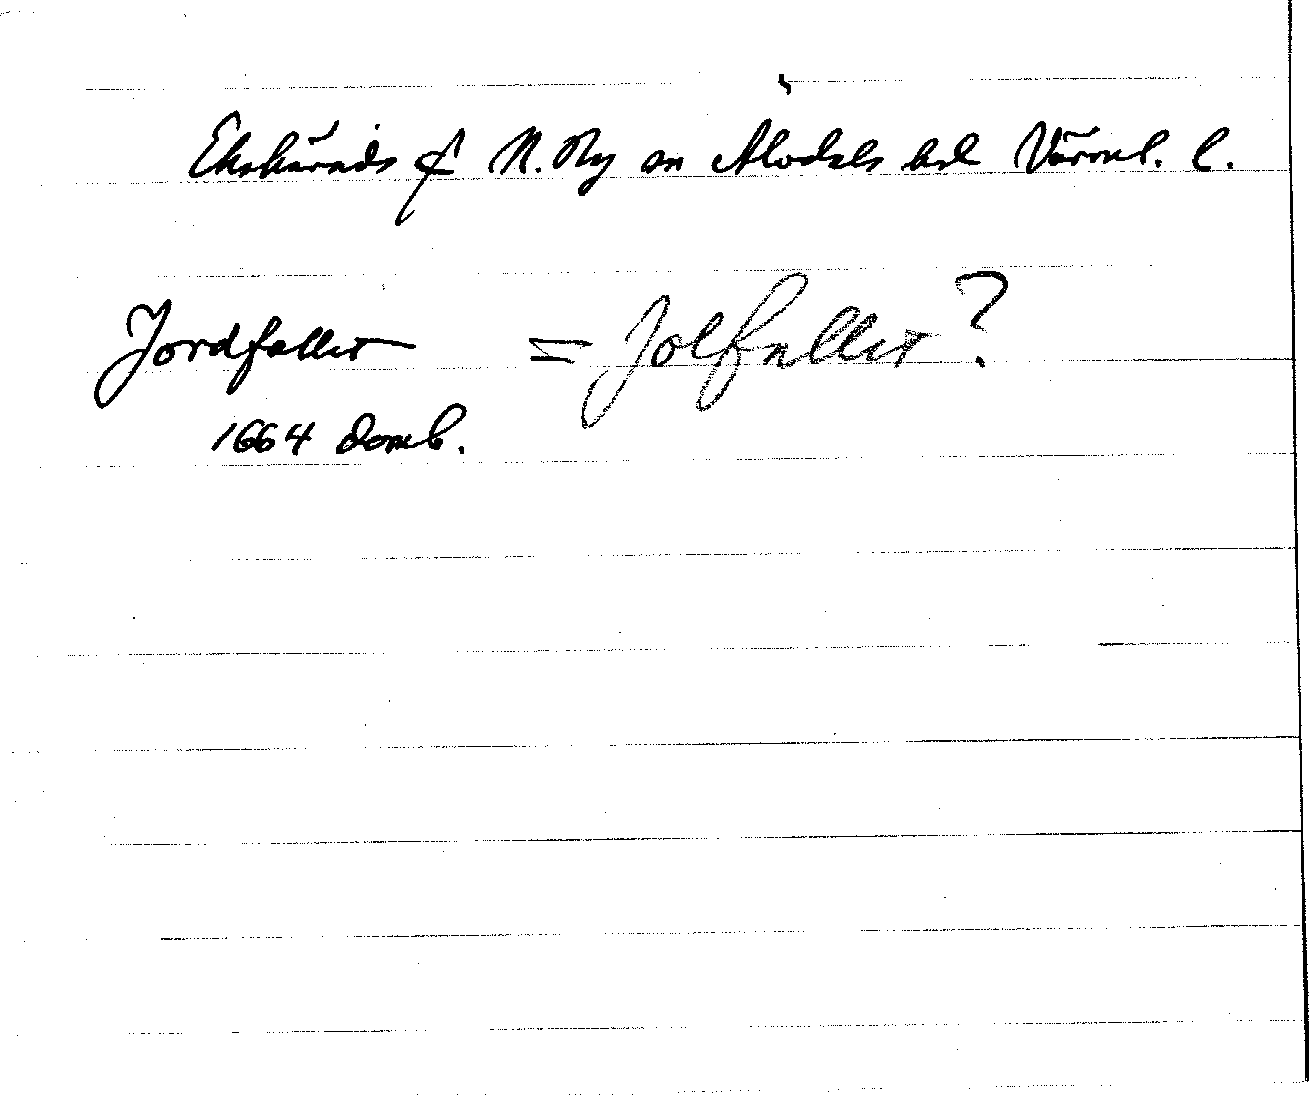 Ekshärads fs N. Ny sn Älvdals hd Värml. l.
Jordfallet = Jolfallet?
1664 Domb.